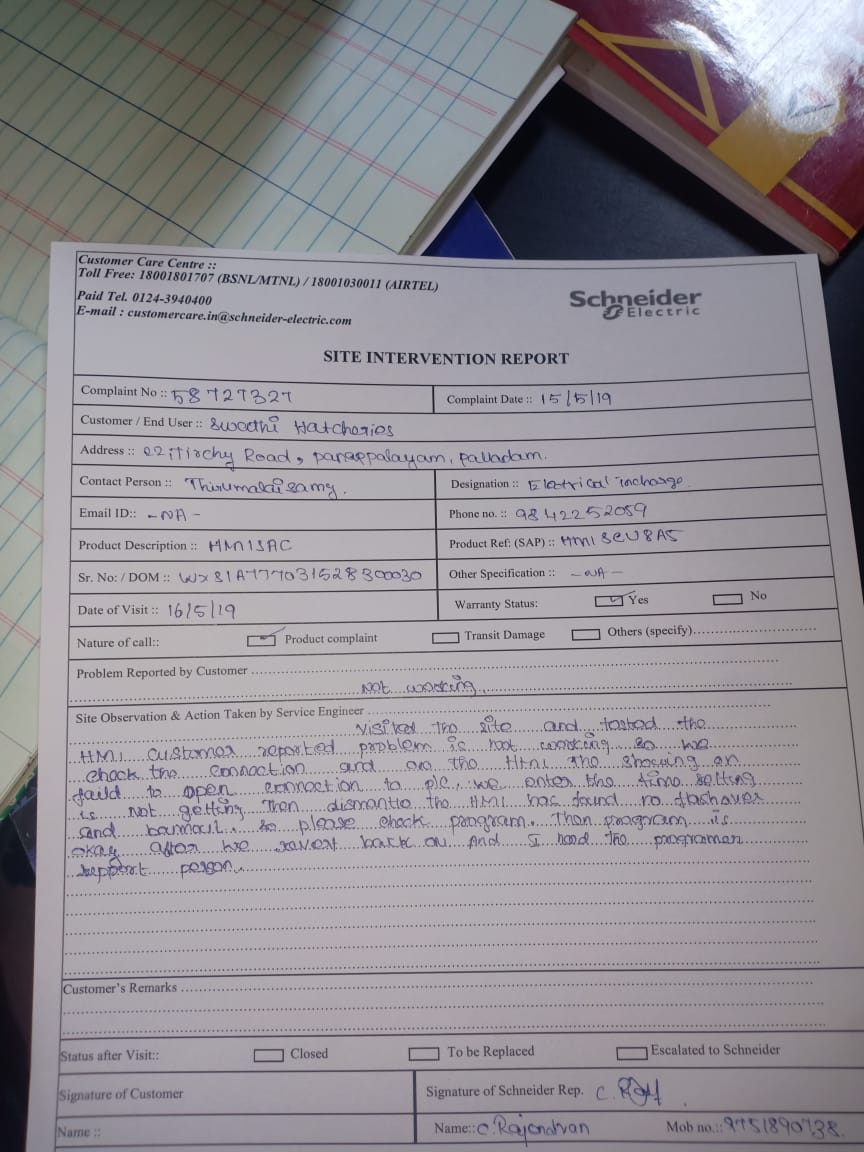 Customer Care Centre ::
Toll Free: 18001801707 (BSNL/MTNL) / 18001030011 (AIRTEL)
Paid Tel. 0124-3940400
E-mail : customercare.in@schneider-electric.com
Schneider
Electric
SITE INTERVENTION REPORT
Complaint No :: 58727327
Complaint Date :: 15/5/19
Customer / End User :: Swathi Hatcheries
Address :: Road, parappalayam, palladam.
Contact Person :: Thirumalaisamy.
Designation :: Eletrical incharge
Email ID:: -NA-
Phone no. :: 9842252059
Product Description ::
Product Ref: (SAP) ::
Sr. No: / DOM ::
Other Specification :: -NA-
Date of Visit :: 16/5/19
Warranty Status: Yes No
Nature of call:: Product complaint Transit Damage Others (specify)
Problem Reported by Customer
Not working
Site Observation & Action Taken by Service Engineer
visited the site and tested the
HMI customer reported problem is not working so we
check the connection and on the HMI the showing an
faild to open connection to plc, we enter the time setting
is not getting. Then dismantle the HMI has found no flashover
and so please check program. Then program is
okay after we back on And I need the programer
support person.
Customer's Remarks
Status after Visit:: Closed To be Replaced Escalated to Schneider
Signature of Customer
Signature of Schneider Rep.
Name ::
Name:: C. Rajendran Mob no.:: 9751890738.